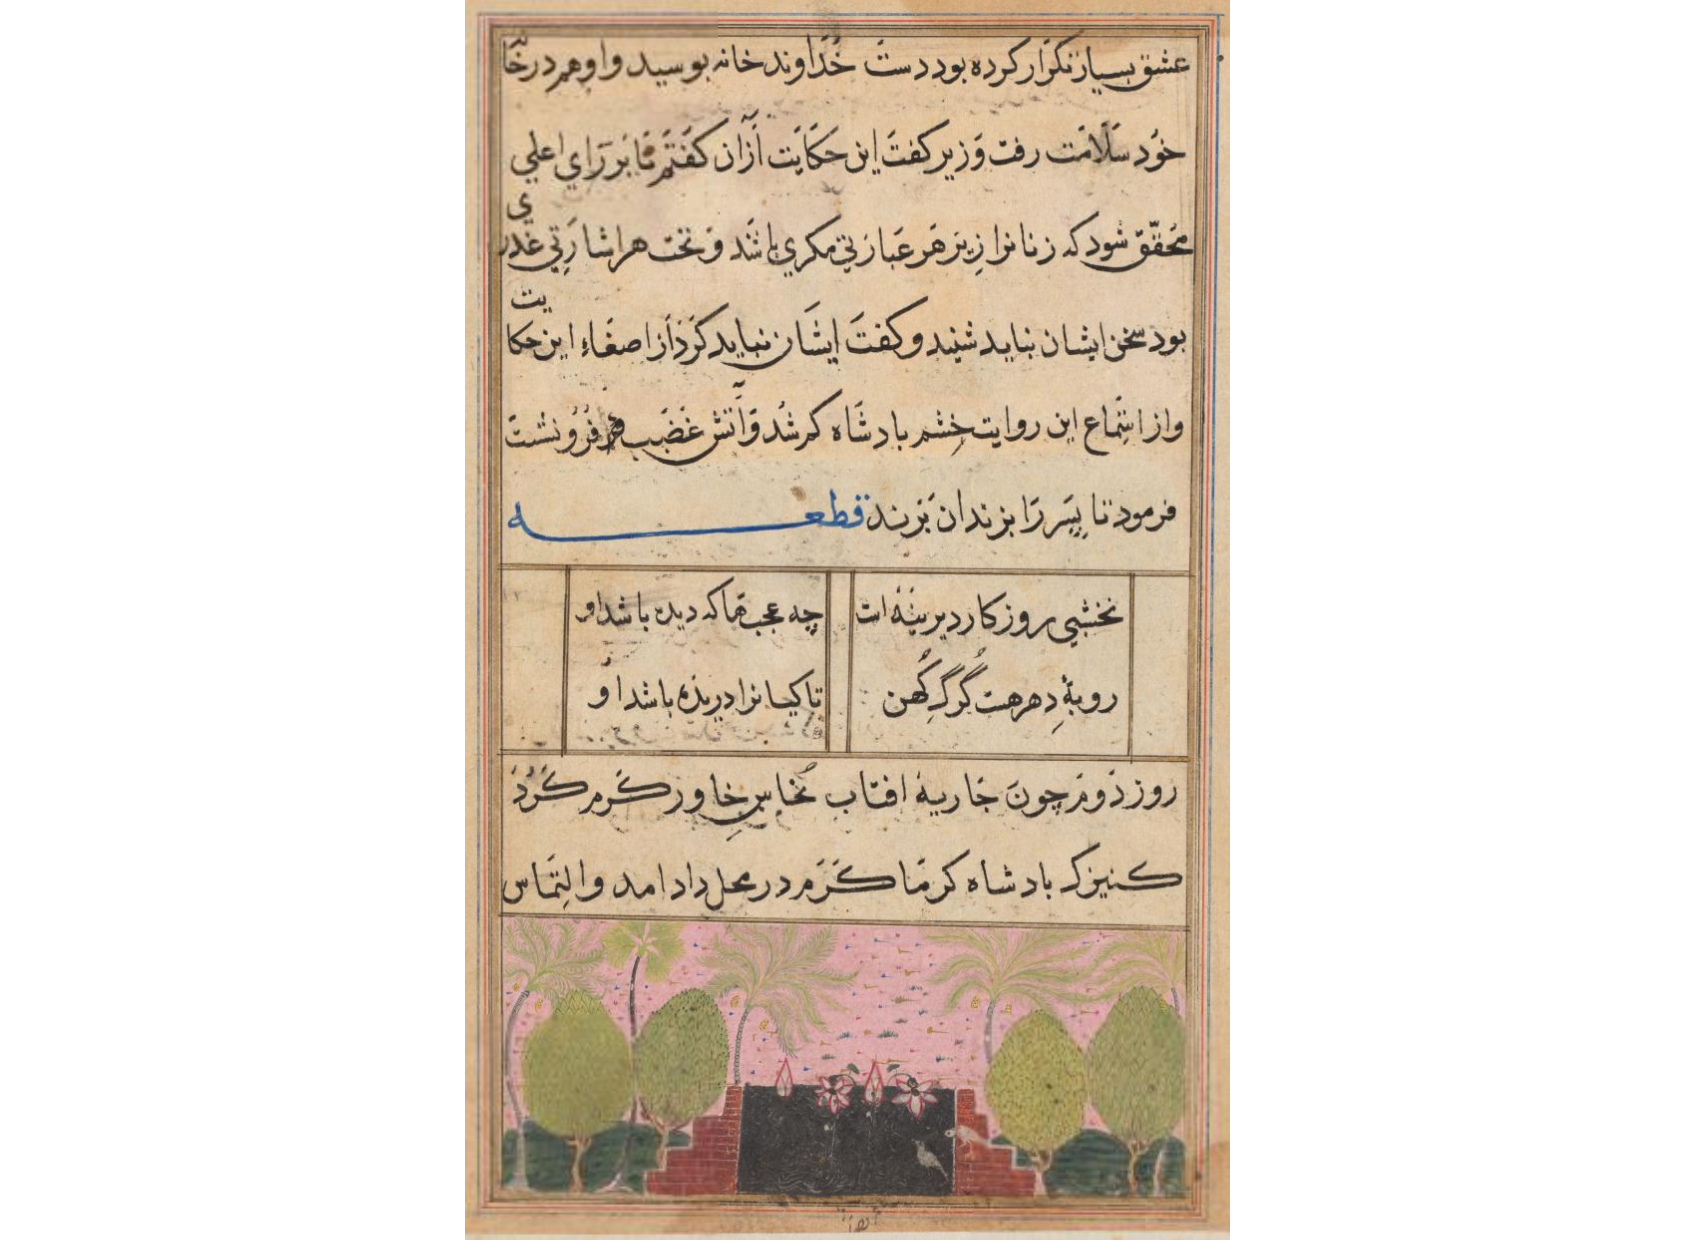 عشق بسیار تکرار کرده بود دست خداوند خانه بوسید و او هم در خا
خود سلامت رفت وزیر کفت این حکایت ازان کفتم تا بر رای اعلی
محقّق شود که زنانرا زیر هر عبارتی مکری باشد و تحت هر اشارتی غدری
بود سخن ایشان نباید شنید و کفت ایشان نباید کرد از اصغاء این حکایت
و از استماع این روایت خشم بادشاه کم شد و آتش غضب هم فرو نشست
فرمود تا پسر را بزندان بَرند قطعه
نخشبی روزکار دیرینهٔ است
چه عجبها که دیده باشد او
روبهٔ دهر هست گرگِ کُهن
تا کیانرا دریده باشد او
روز دوم چون جاریهٔ افتاب نُخاسِ خاور گرم کرد
کنیزک بادشاه کرما کرم در محل داد امد و التماس